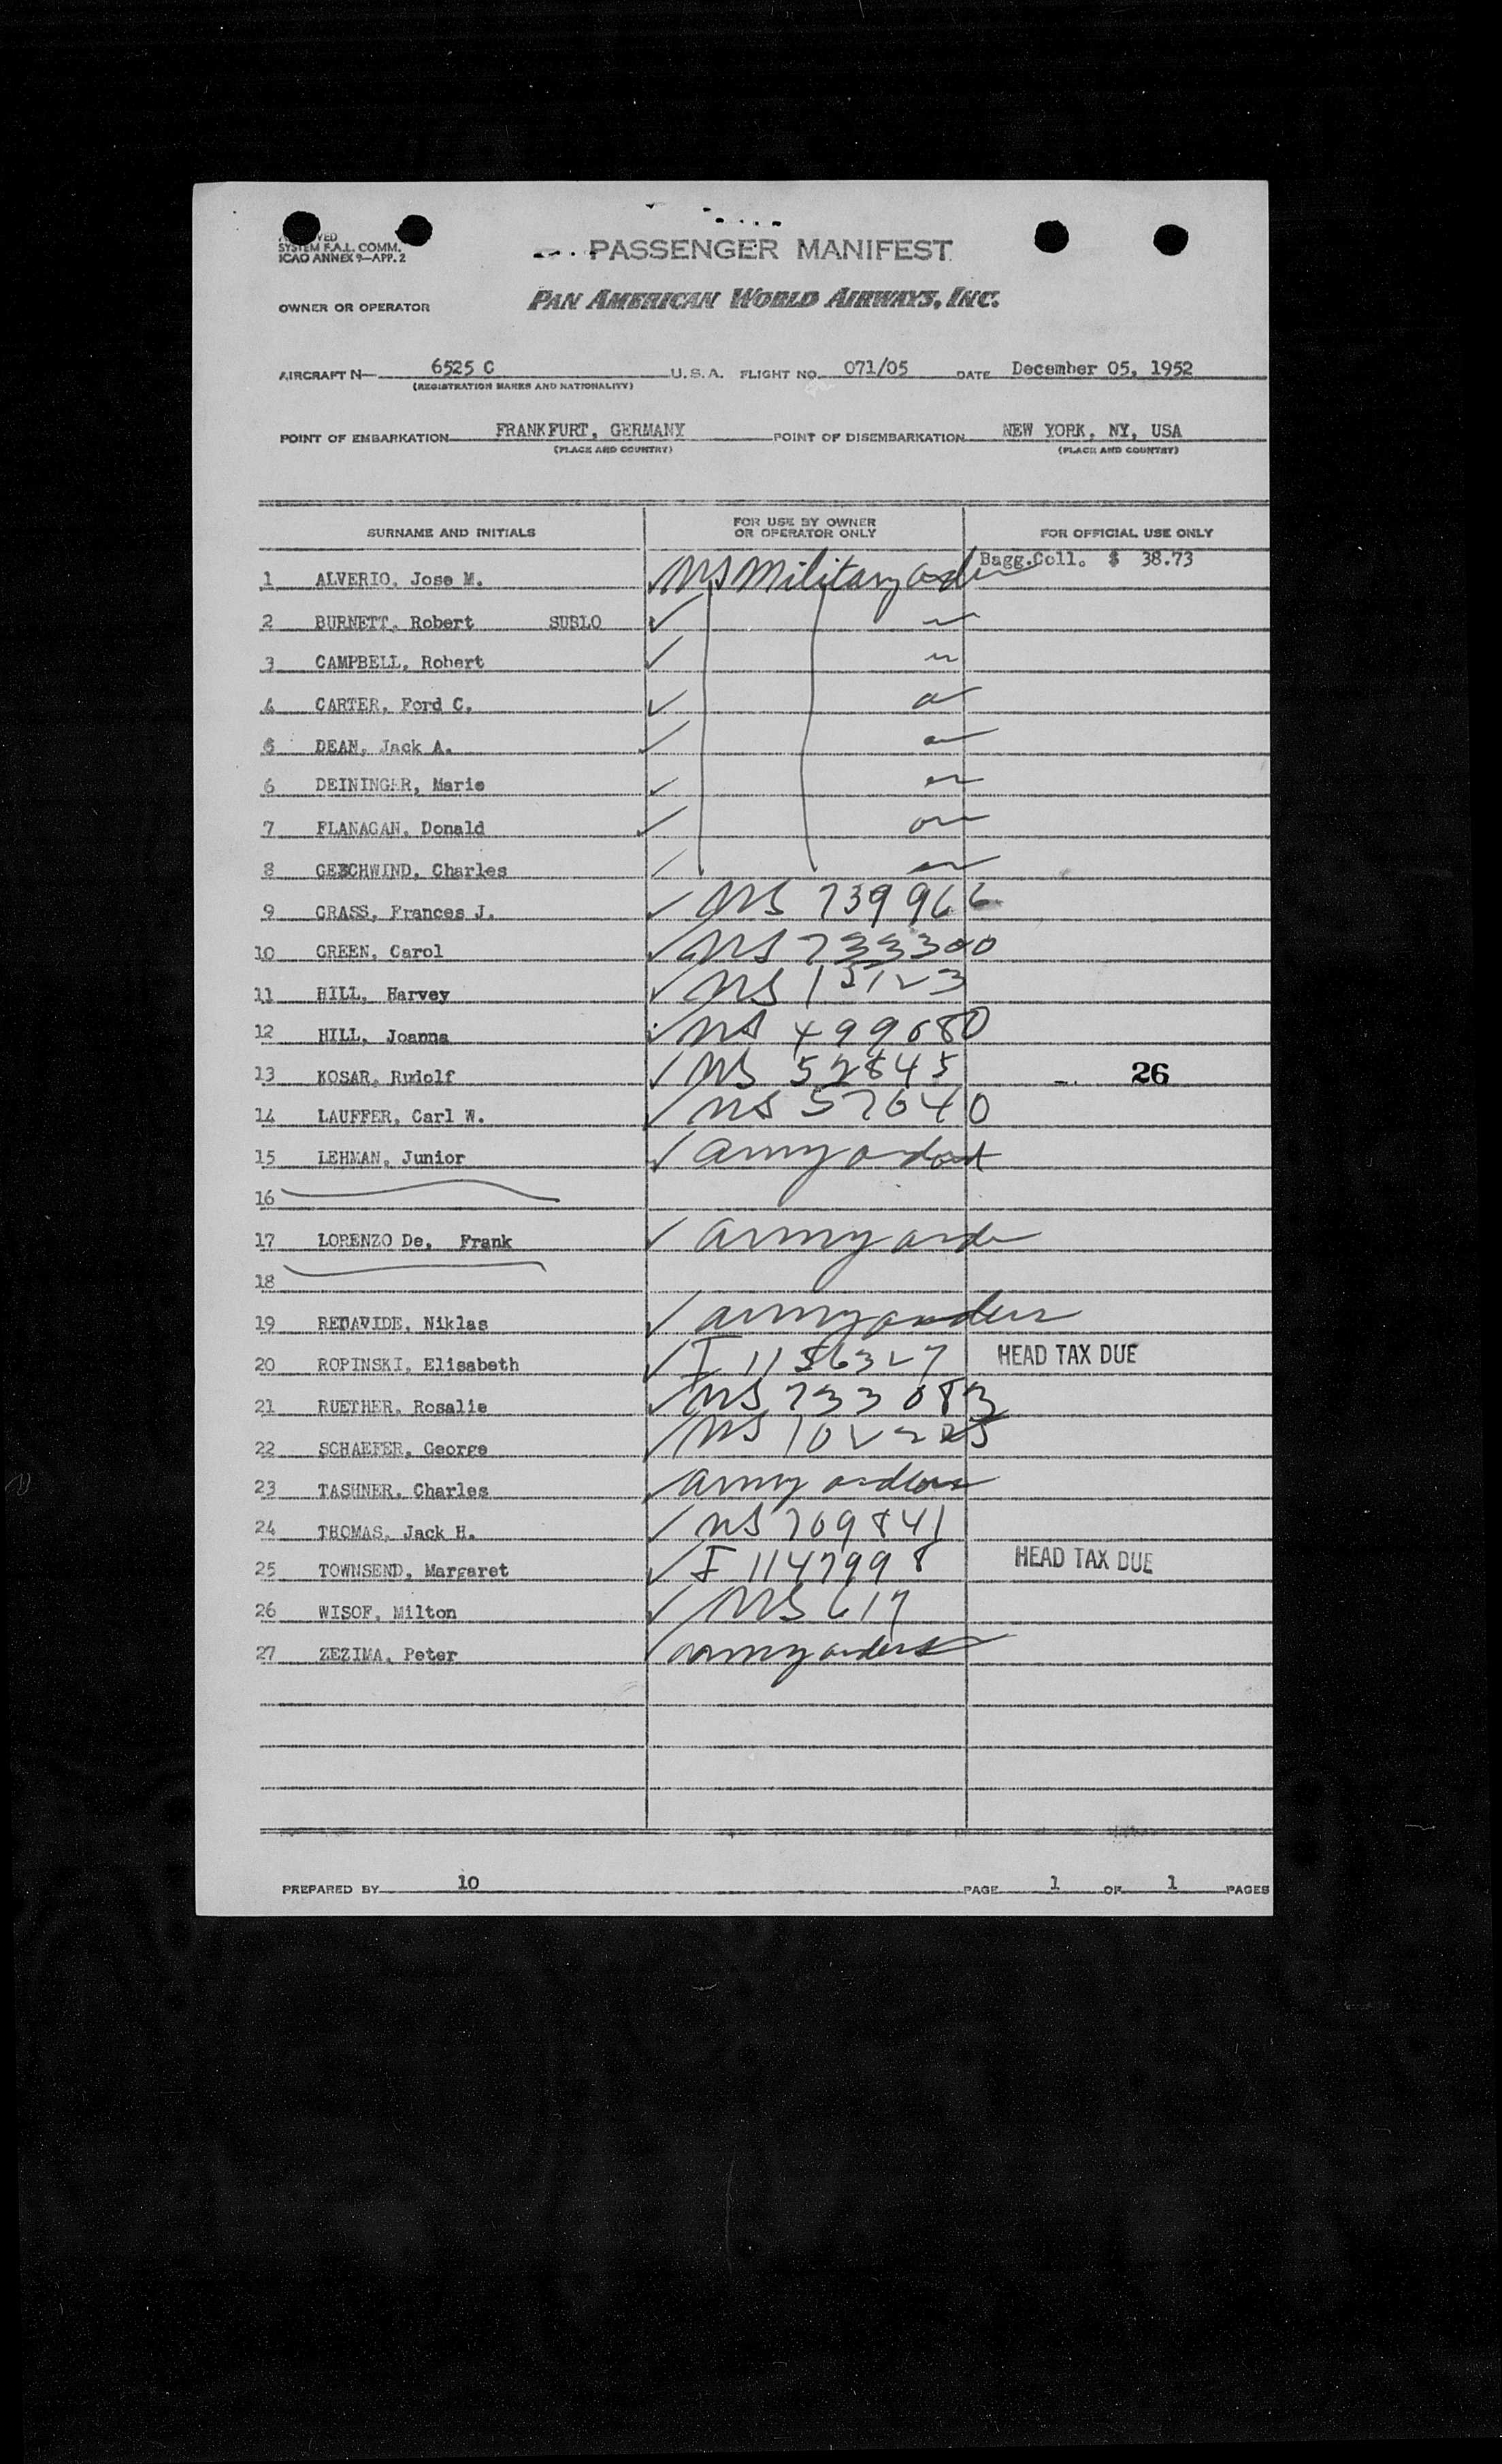 SYSTEM F.A.L. COMM.
ICAO ANNEX 9—APP. 2
PASSENGER MANIFEST
OWNER OR OPERATOR PAN AMERICAN WORLD AIRWAYS, INC.
AIRCRAFT N— 6525 C U.S.A. FLIGHT NO. 071/05 DATE December 05, 1952
(REGISTRATION MARKS AND NATIONALITY)
POINT OF EMBARKATION FRANKFURT, GERMANY POINT OF DISEMBARKATION NEW YORK, NY, USA
(PLACE AND COUNTRY) (PLACE AND COUNTRY)
SURNAME AND INITIALS FOR USE BY OWNER OR OPERATOR ONLY FOR OFFICIAL USE ONLY
Bagg.Coll. $ 38.73
1 ALVERIO, Jose M. Military
2 BURNETT, Robert SUBLO
3 CAMPBELL, Robert
4 CARTER, Ford C.
5 DEAN, Jack A.
6 DEININGER, Marie
7 FLANAGAN, Donald
8 GESCHWIND, Charles
9 GRASS, Frances J. 739966
10 GREEN, Carol
11 HILL, Harvey 15123
12 HILL, Joanna 499680
13 KOSAR, Rudolf 52845 26
14 LAUFFER, Carl W. 57640
15 LEHMAN, Junior army
16
17 LORENZO De, Frank army
18
19 REDAVIDE, Niklas army orders
20 ROPINSKI, Elisabeth I 1156327 HEAD TAX DUE
21 RUETHER, Rosalie 733083
22 SCHAEFER, George
23 TASHNER, Charles army orders
24 THOMAS, Jack H. 709841
25 TOWNSEND, Margaret I 1147998 HEAD TAX DUE
26 WISOF, Milton 617
27 ZEZIMA, Peter army orders
PREPARED BY 10 PAGE 1 OF 1 PAGES